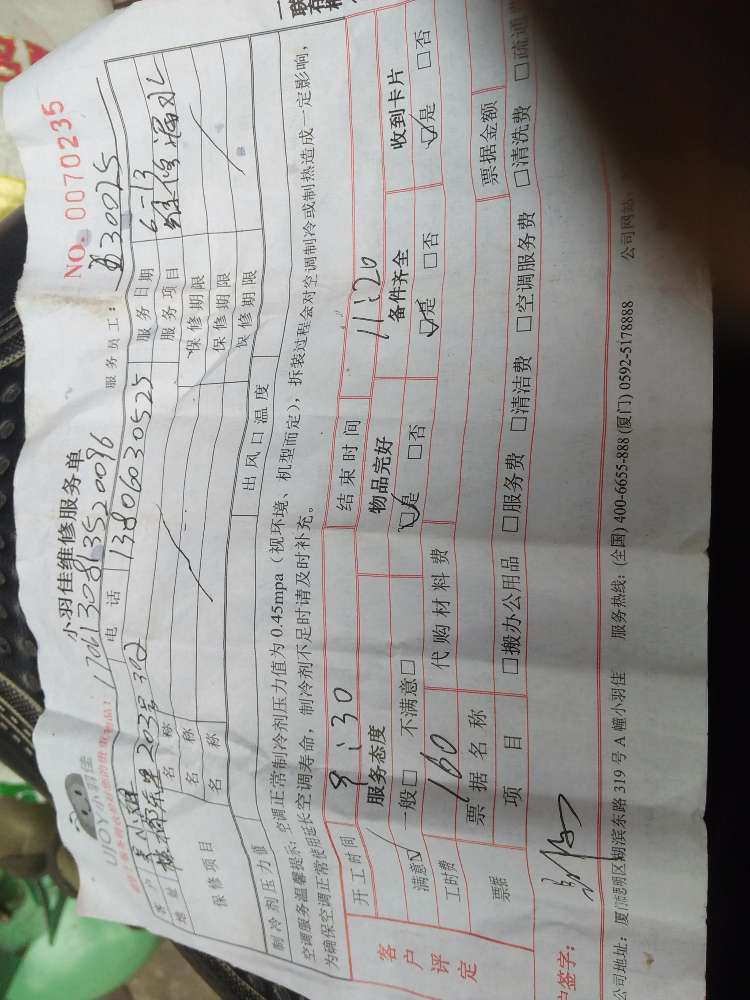 UIOY小羽佳
小羽佳维修服务单
NO. 0070235
170613081352 0096
服务员工: 30025
客户 电话 13806030525 服务日期 6-13
地址 203号302 服务项目 维修漏水
保修项目 名称 保修期限
名称 保修期限
名称 保修期限
制冷剂压力值 出风口温度
空调服务温馨提示: 空调正常制冷剂压力值为 0.45mpa(视环境、机型而定), 拆装过程会对空调制冷或制热造成一定影响,
为确保空调正常使用延长空调寿命, 制冷剂不足时请及时补充。
客户评定
开工时间 9:30 结束时间 11:20
服务态度 物品完好 备件齐全 收到卡片
满意☑ 一般□ 不满意□ ☑是 □否 ☑是 □否 ☑是 □否
工时费 160 代购材料费
票据 票据名称 票据金额
项目 □搬办公用品 □服务费 □清洁费 □空调服务费 □清洗费 □疏通
户签字:
公司地址: 厦门市思明区湖滨东路 319 号 A 幢小羽佳 服务热线: (全国) 400-6655-888 (厦门) 0592-5178888 公司网站